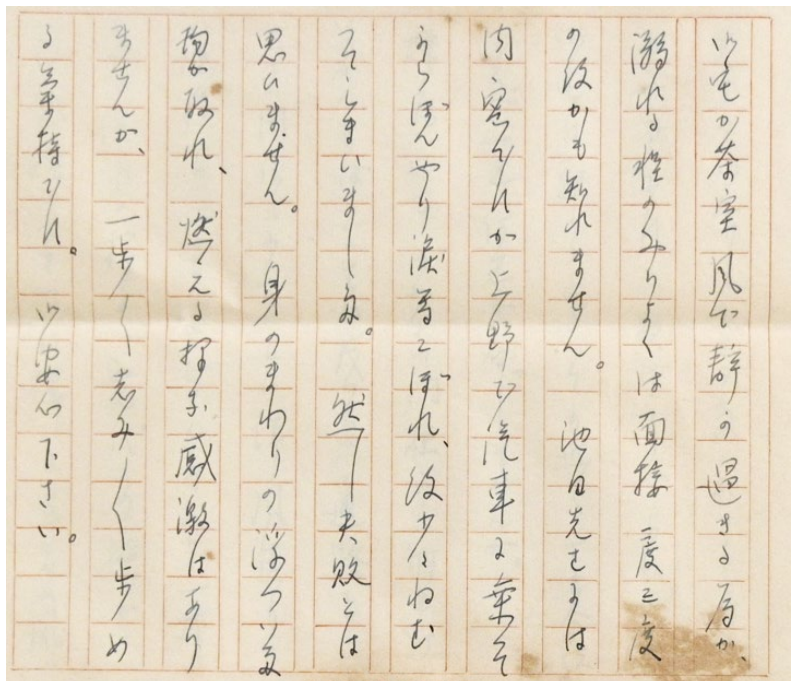 御宅が茶室風で静か過ぎる為か、
溺れる程のみりよくは面接一度二度
の故かも知れません。 池田先生には
内密ですが上野で汽車に乗つて
からぼんやり涙等こぼれ、後少々ねむ
つてしまいました。 然し失敗とは
思ひません。 身のまわりの浮ついた
物が取れ、燃える様な感激はあり
ませんが、 一歩〱志み〱歩め
る氣持です。 御安心下さい。